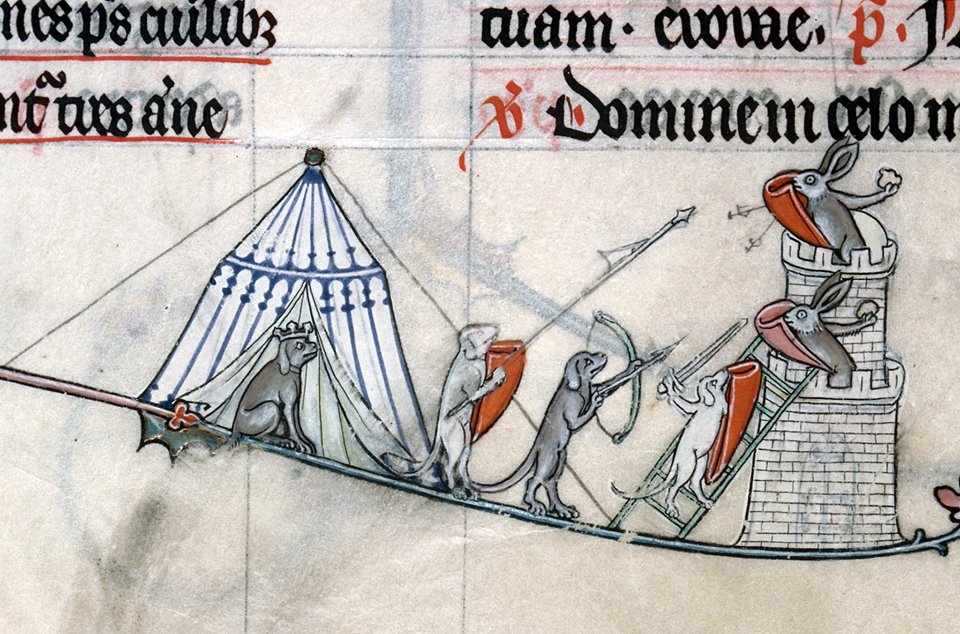 nes ps̄ cuilibꝫ
nt̃ tres an̄e
tuam · evovae. p̄.
℣ Domine in celo m